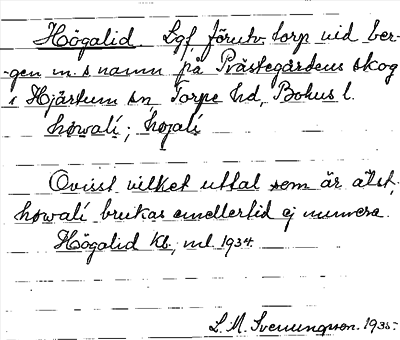 Högalid. Lgf, förutv. torp vid ber-
gen m. s namn på Prästegårdens skog
i Hjärtum sn Torpe hd, Bohus l.
höwalí; höjalí
Ovisst vilket uttal som är älst,
höwalí brukas emellertid ej numera.
Högalid Kb, ml 1934
L. M. Svenungsson. 1935.